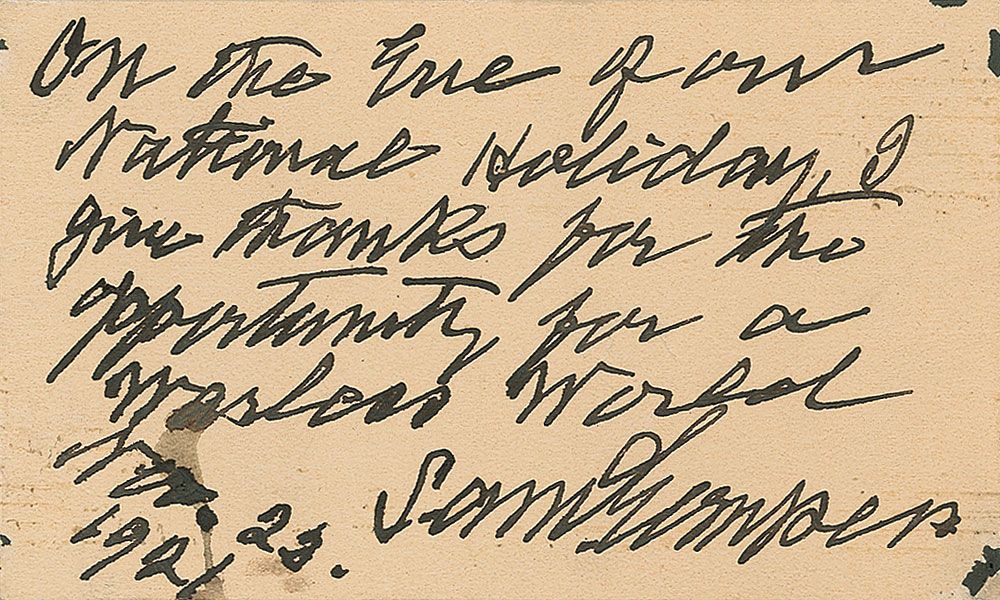 On the Eve of our
National Holiday, I
give thanks for the
opportunity for a
Warless World
Saml Gompers
1921 23.